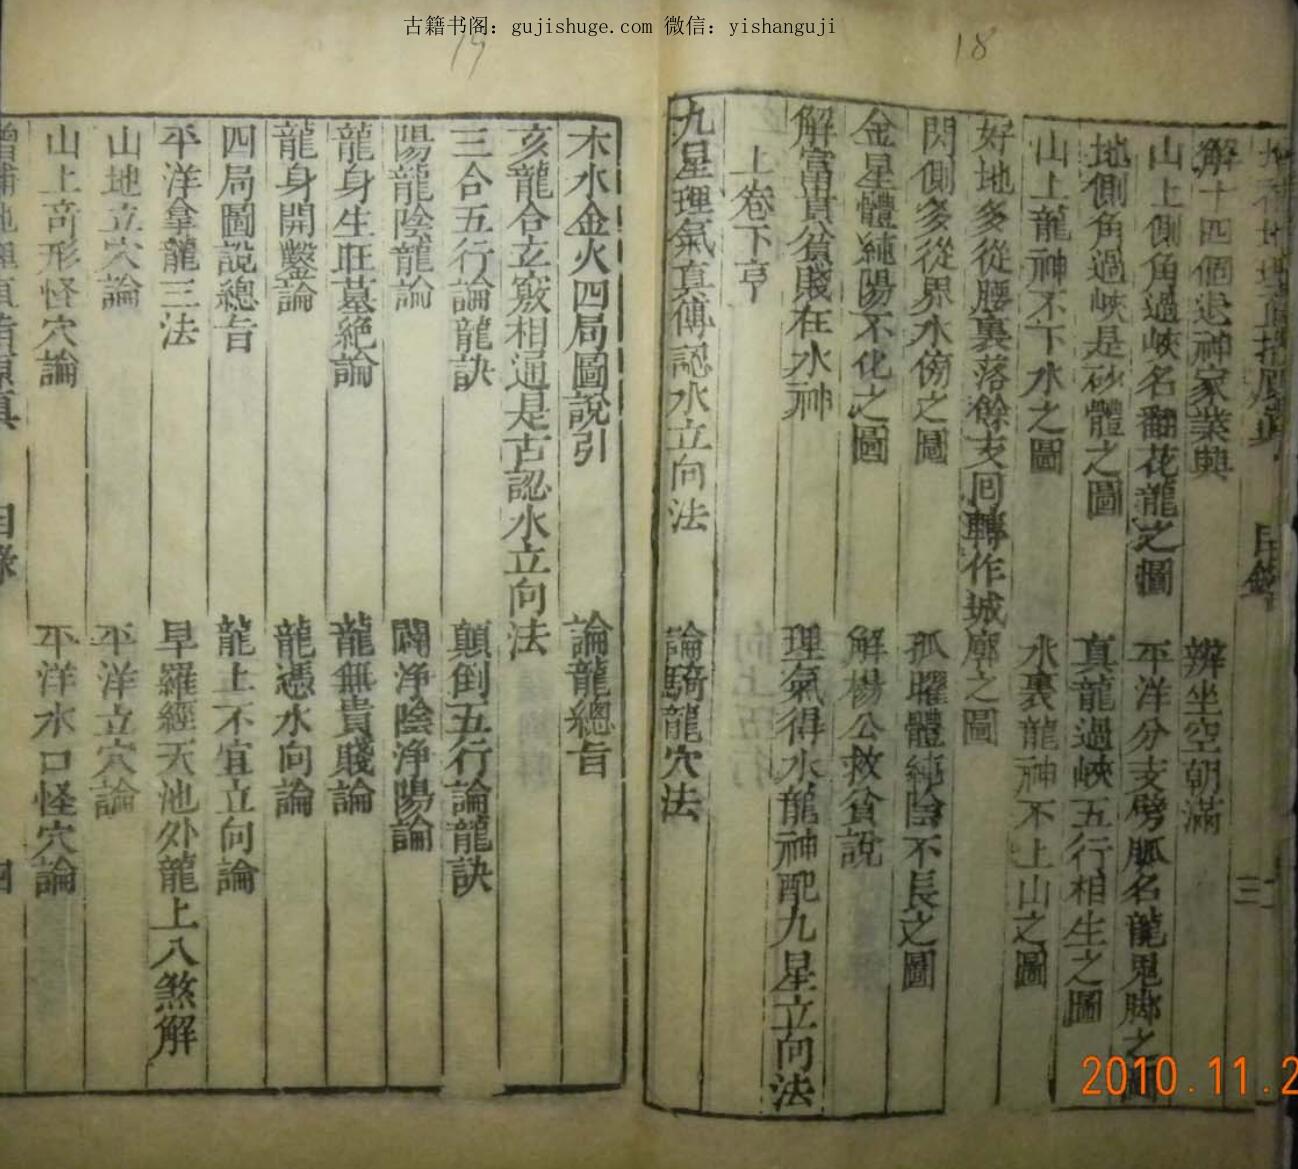 古籍书阁：gujishuge.com 微信：yishanguji
18
19
目錄
三
解十四個退神家業興
辨坐空朝滿
山上側角過峽名翻花龍之圖
平洋分支劈脈名龍鬼脚之圖
地側角過峽是砂體之圖
真龍過峽五行相生之圖
山上龍神不下水之圖
水裏龍神不上山之圖
好地多從腰裏落餘支囘轉作城廓之圖
閃側多從界水傍之圖
孤曜體純陰不長之圖
金星體純陽不化之圖
解楊公救貧說
解富貴貧賤在水神
理氣得水龍神配九星立向法
上卷下亨
九星理氣真傳認水立向法
論騎龍穴法
木水金火四局圖說引
論龍總旨
亥龍合立竅相通是古認水立向法
三合五行論龍訣
顛倒五行論龍訣
陽龍陰龍論
闢淨陰淨陽論
龍身生旺墓絶論
龍無貴賤論
龍身開鑿論
龍憑水向論
四局圖說總旨
龍上不宜立向論
平洋拿龍三法
早羅經天池外龍上八煞解
山地立穴論
平洋立穴論
山上竒形怪穴論
平洋水口怪穴論
目錄
四
2010.11.2